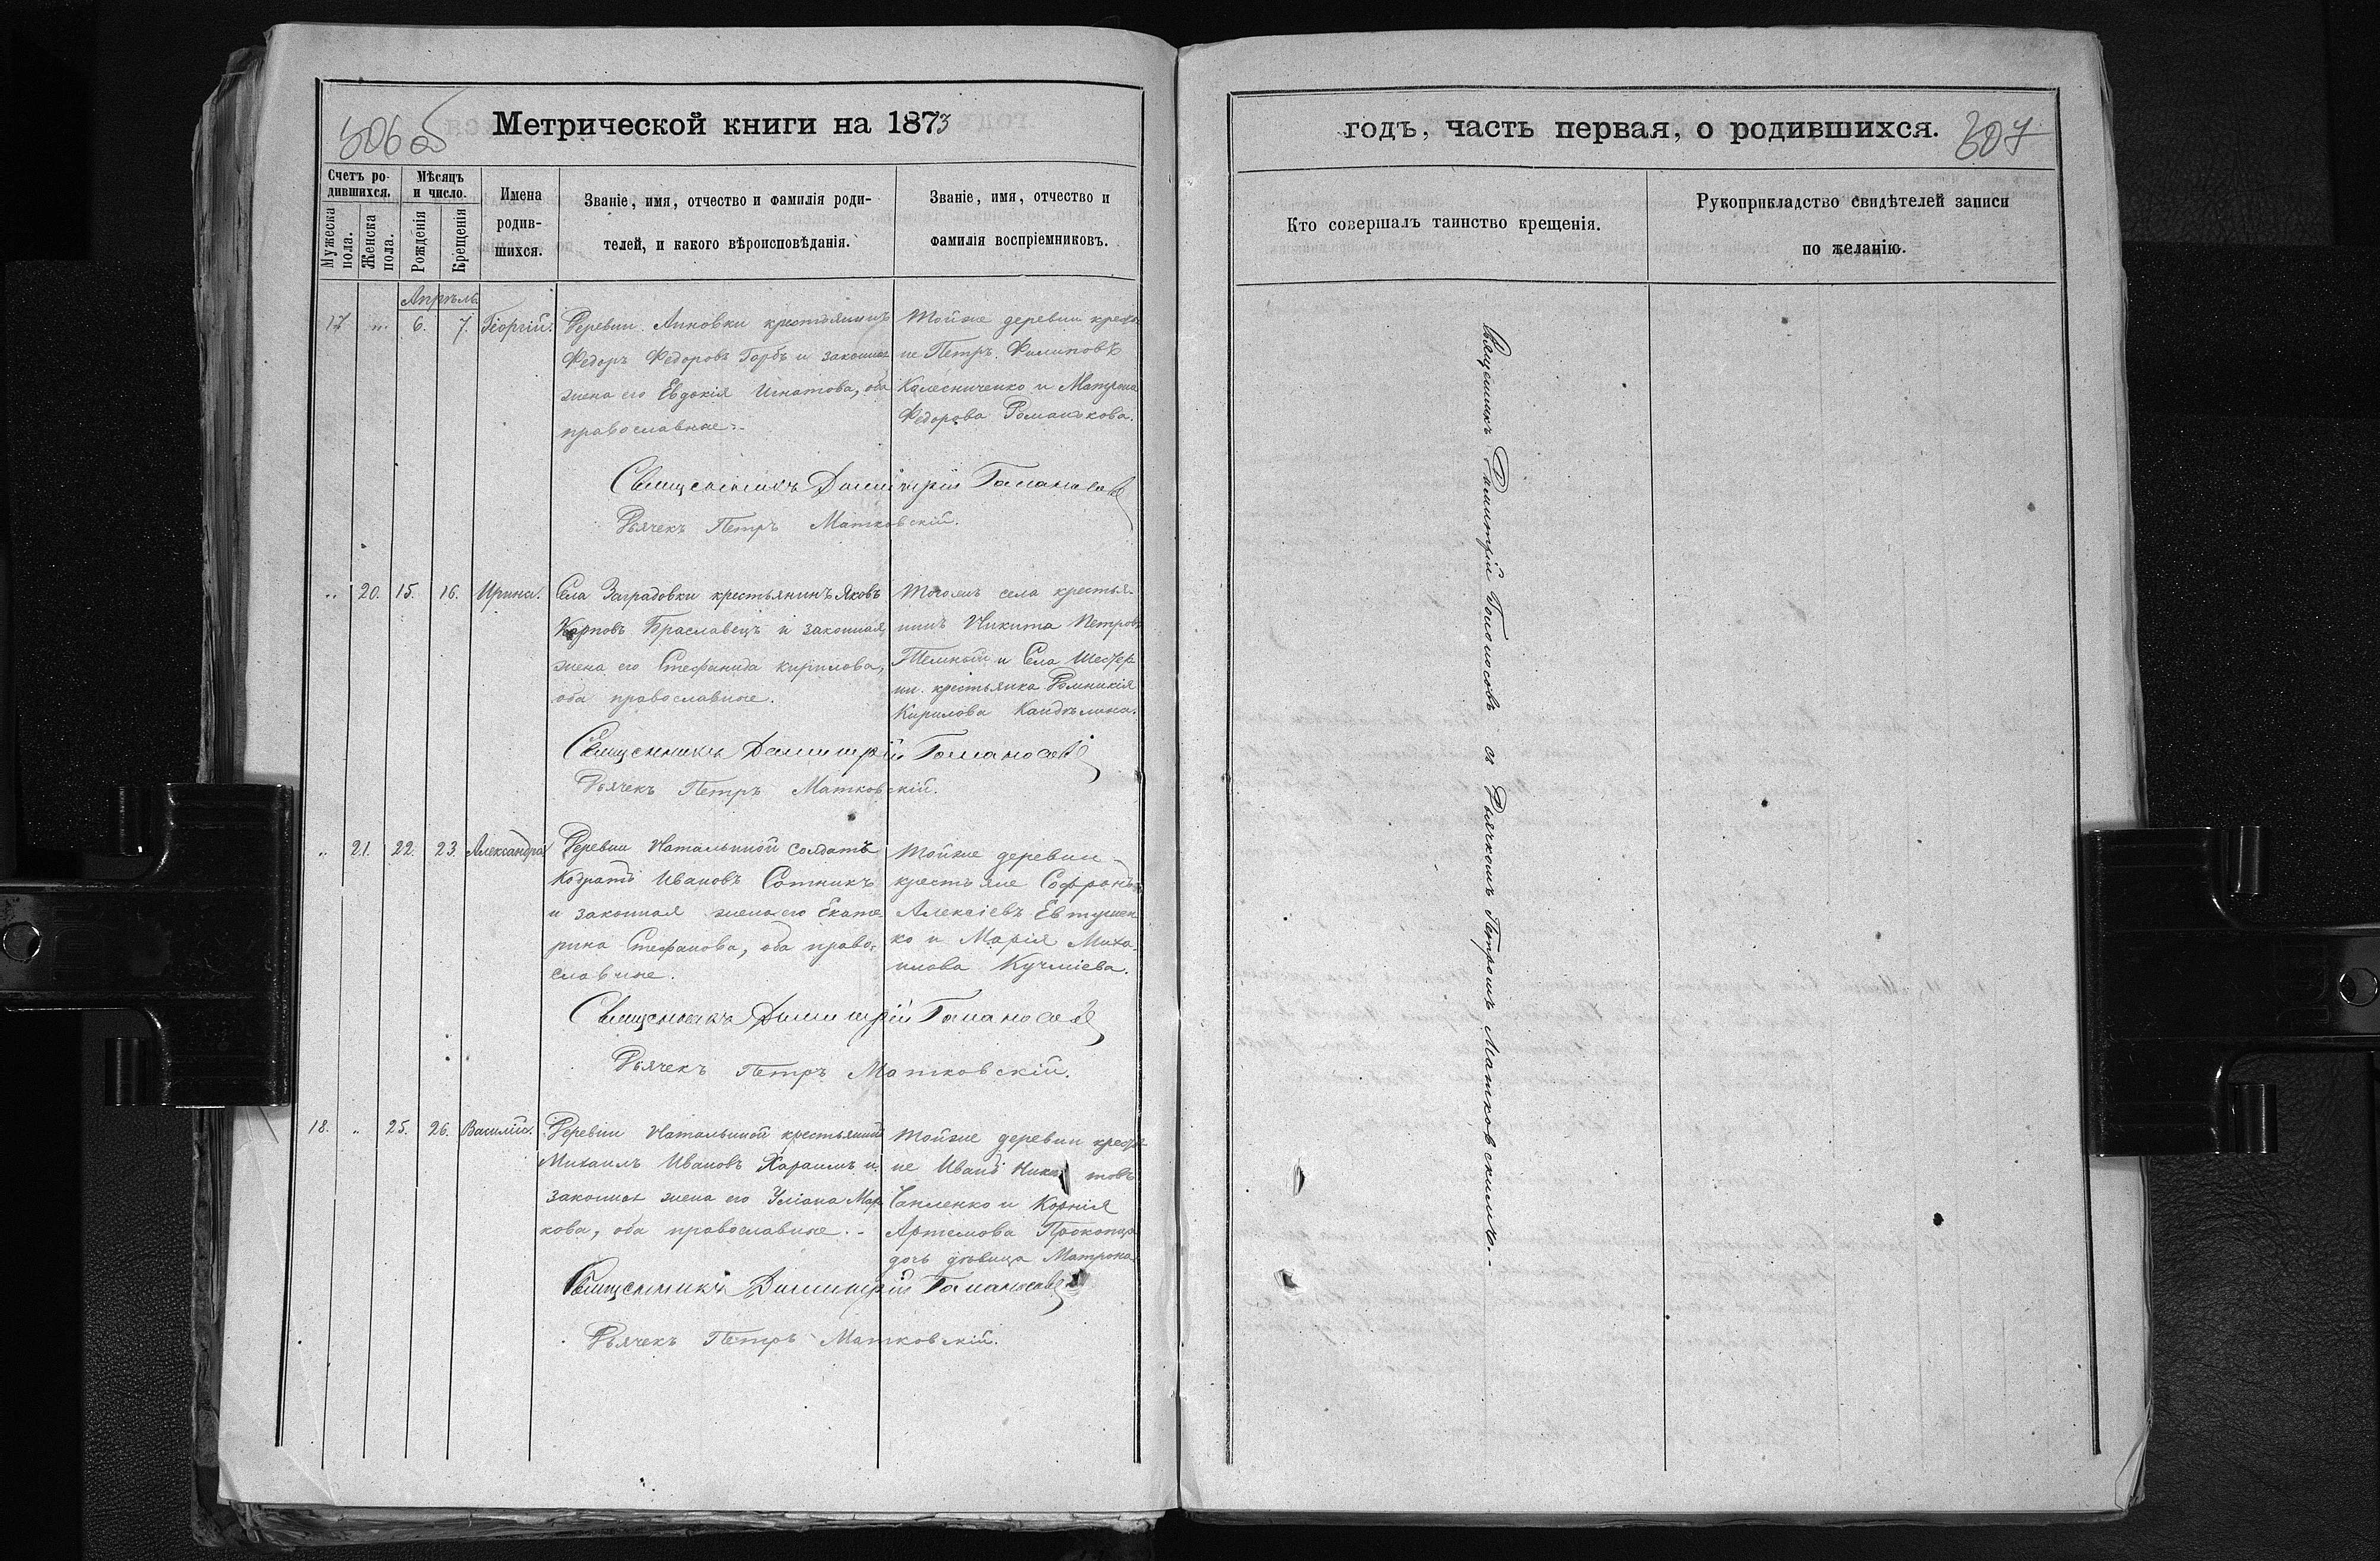 306 об
Метрической книги на 1873
Счетъ ро-
дившихся.
Мужеска
пола.
Женска
пола.
Мѣсяцъ
и число.
Рожденія
Крещенія
Имена
родив-
шихся.
Званіе, имя, отчество и фамилія роди-
телей, и какого вѣроисповѣданія.
Званіе, имя, отчество и
фамилія воспріемниковъ.
Апрѣль.
17. „ 6. 7. Георгій.
Деревни Анновки крестьянинъ
Федоръ Федоровъ Горбъ и законная
жена его Евдокія Игнатова, оба
православные.
Тойже деревни крестья-
не Петръ Филиповъ
Колесниченко и Матрона
Федорова Романкова.
Священникъ Димитрій
Дьячекъ Петръ Матковскій.
„ 20. 15. 16. Ирина.
Села Заградовки крестьянинъ Яковъ
Карповъ Браславецъ и законная
жена его Стефанида Кирилова,
оба православные.
Тогожъ села крестья-
нинъ Никита Петровъ
Темный и Села Шестер
ни крестьянка
Кирилова
Священникъ Димитрій
Дьячекъ Петръ Матковскій.
„ 21. 22. 23. Александра
Деревни Натальиной солдатъ
Кодратъ Ивановъ Сотникъ
и законная жена его Екате
рина Стефанова, оба право-
славные.
Тойже деревни
крестьяне Софронъ
Алексіевъ Евтушен
ко и Марія Миха-
илова Кучміева.
Священникъ Димитрій
Дьячекъ Петръ Матковскій.
18. „ 25. 26. Василій.
Деревни Натальиной крестьянинъ
Михаилъ Ивановъ Хараимъ и
законная жена его Уліана Мар
кова, оба православные.
Тойже деревни крестья-
не Иванъ
Чапленко и Корнія
Артемова Прокопца
дочь дѣвица Матрона
Священникъ Димитрій
Дьячекъ Петръ Матковскій.
годъ, часть первая, о родившихся.
307
Кто совершалъ таинство крещенія.
Рукоприкладство свидѣтелей записи
по желанію.
Священникъ Димитрій Голоносовъ съ Дьячкомъ Петромъ Матковскимъ.